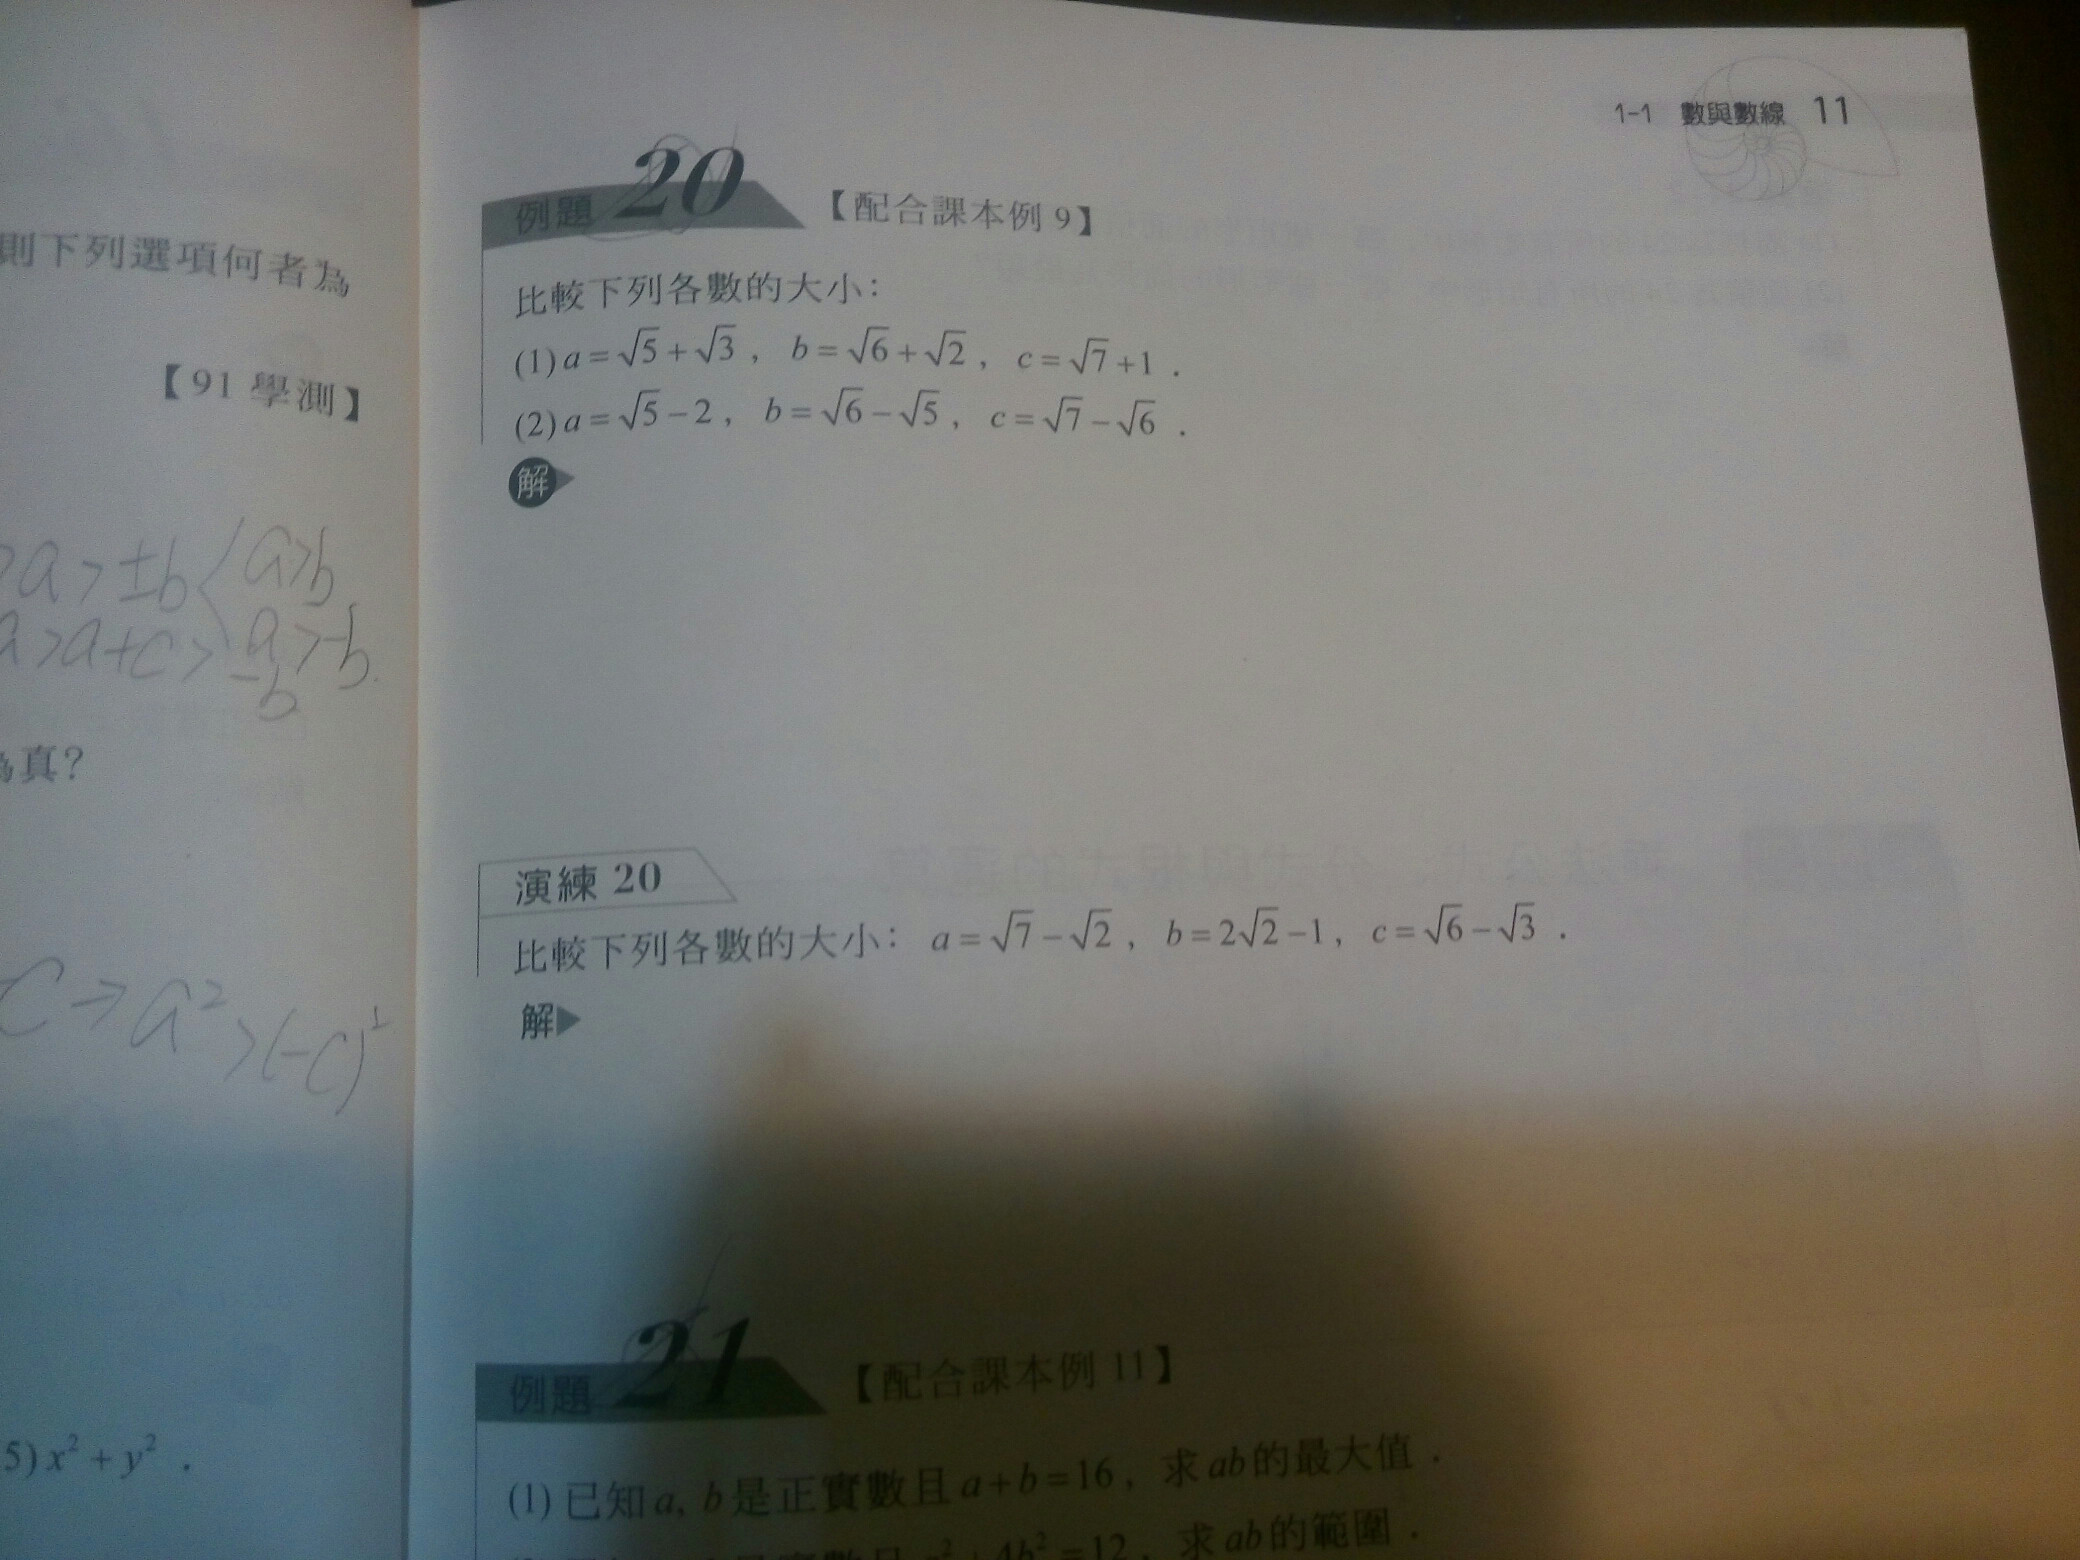 則下列選項何者為
【91 學測】
a > ±b < a>b
a > a+c > a > -b
-b
為真?
c → a² > (-c)²
5) x² + y² .
1-1 數與數線 11
例題 20 【配合課本例 9】
比較下列各數的大小:
(1) a = √5 + √3 , b = √6 + √2 , c = √7 + 1 .
(2) a = √5 − 2 , b = √6 − √5 , c = √7 − √6 .
解
演練 20
比較下列各數的大小: a = √7 − √2 , b = 2√2 − 1 , c = √6 − √3 .
解
例題 21 【配合課本例 11】
(1) 已知 a, b 是正實數且 a + b = 16 , 求 ab 的最大值 .
實數且 + 4b² = 12 , 求 ab 的範圍 .